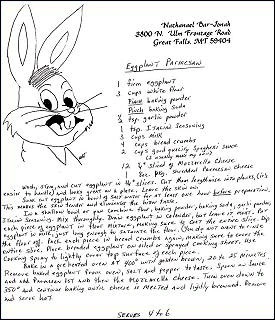 Nathanael Bar-Jonah
3800 N. Ulm Frontage Road
Great Falls, MT 59404
Eggplant Parmesan
1 firm eggplant
3 cups white flour
Pinch baking powder
Pinch baking soda
garlic powder
1 tsp. Italian Seasoning
3 cups Milk
4 cups bread crumbs
cups good quality Spaghetti sauce
(I usually make my own)
12 slices of Mozzarella Cheese
pkg. shredded Parmesan Cheese
Wash, stem, and cut eggplant in slices. Cut them lengthwise into planks (it's
easier to handle) and looks great on a plate. Leave the skin on.
Soak cut eggplant in bowl of salt water for at least one hour before preparation.
This makes the skin tender and eliminates the bitter taste.
In a shallow bowl or pan combine flour, baking powder, baking soda, garlic powder
Italian Seasoning. Mix thoroughly. Drain eggplant in colander, but leave it moist. Put
each piece of eggplant in flour mixture, making sure to coat the entire slice. Dip
eggplant in milk, just long enough to saturate the flour. You do not want to rinse
the flour off. Lay each piece in bread crumbs again, making sure to cover the
entire slice. Place breaded eggplant on oiled or sprayed cooking sheet. Use
cooking spray to lightly cover top surface of each piece.
Bake in a preheated oven at 400 until golden brown, 20 to 25 minutes
Remove baked eggplant from oven, salt and pepper to taste. Spoon on sauce
and add Parmesan 1st and then the Mozzarella cheese. Turn oven down to
350° and continue baking until cheese is melted and lightly browned. Remove
and serve hot.
Serves 4 to 6